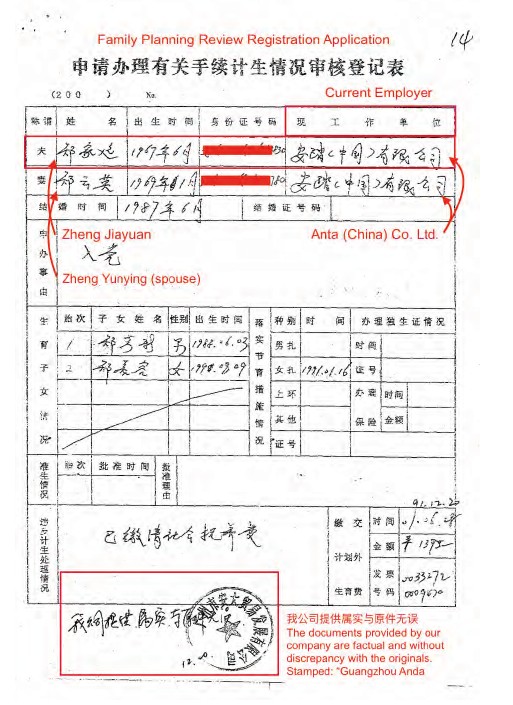 Family Planning Review Registration Application
14
申请办理有关手续计生情况审核登记表
(200 ) No.
Current Employer
称谓 姓 名 出生时间 身份证号码 现 工 作 单 位
夫 郑家远 1967年6月 安踏(中国)有限公司
妻 郑云英 1969年11月 安踏(中国)有限公司
结婚时间 1987年6月 结婚证号码
Zheng Jiayuan Anta (China) Co. Ltd.
申办事由 入党
Zheng Yunying (spouse)
生育子女情况 胎次 子女姓名 性别 出生时间 落实节育措施情况 种别 时 间 办理独生证情况
1 男 1988.06.03 男扎 时间
2 女 女扎 1991.01.16 证号
上环 办理保险 时间
其他 金额
证号
准生情况 胎次 批准时间 批准理由
91.12.20
违占计生处理情况 已缴清社会抚养费 缴交计划外生育费 时间
金额
发票号码 0033272
我公司提供属实与原件无误
我公司提供属实与原件无误
The documents provided by our
company are factual and without
discrepancy with the originals.
Stamped: “Guangzhou Anda